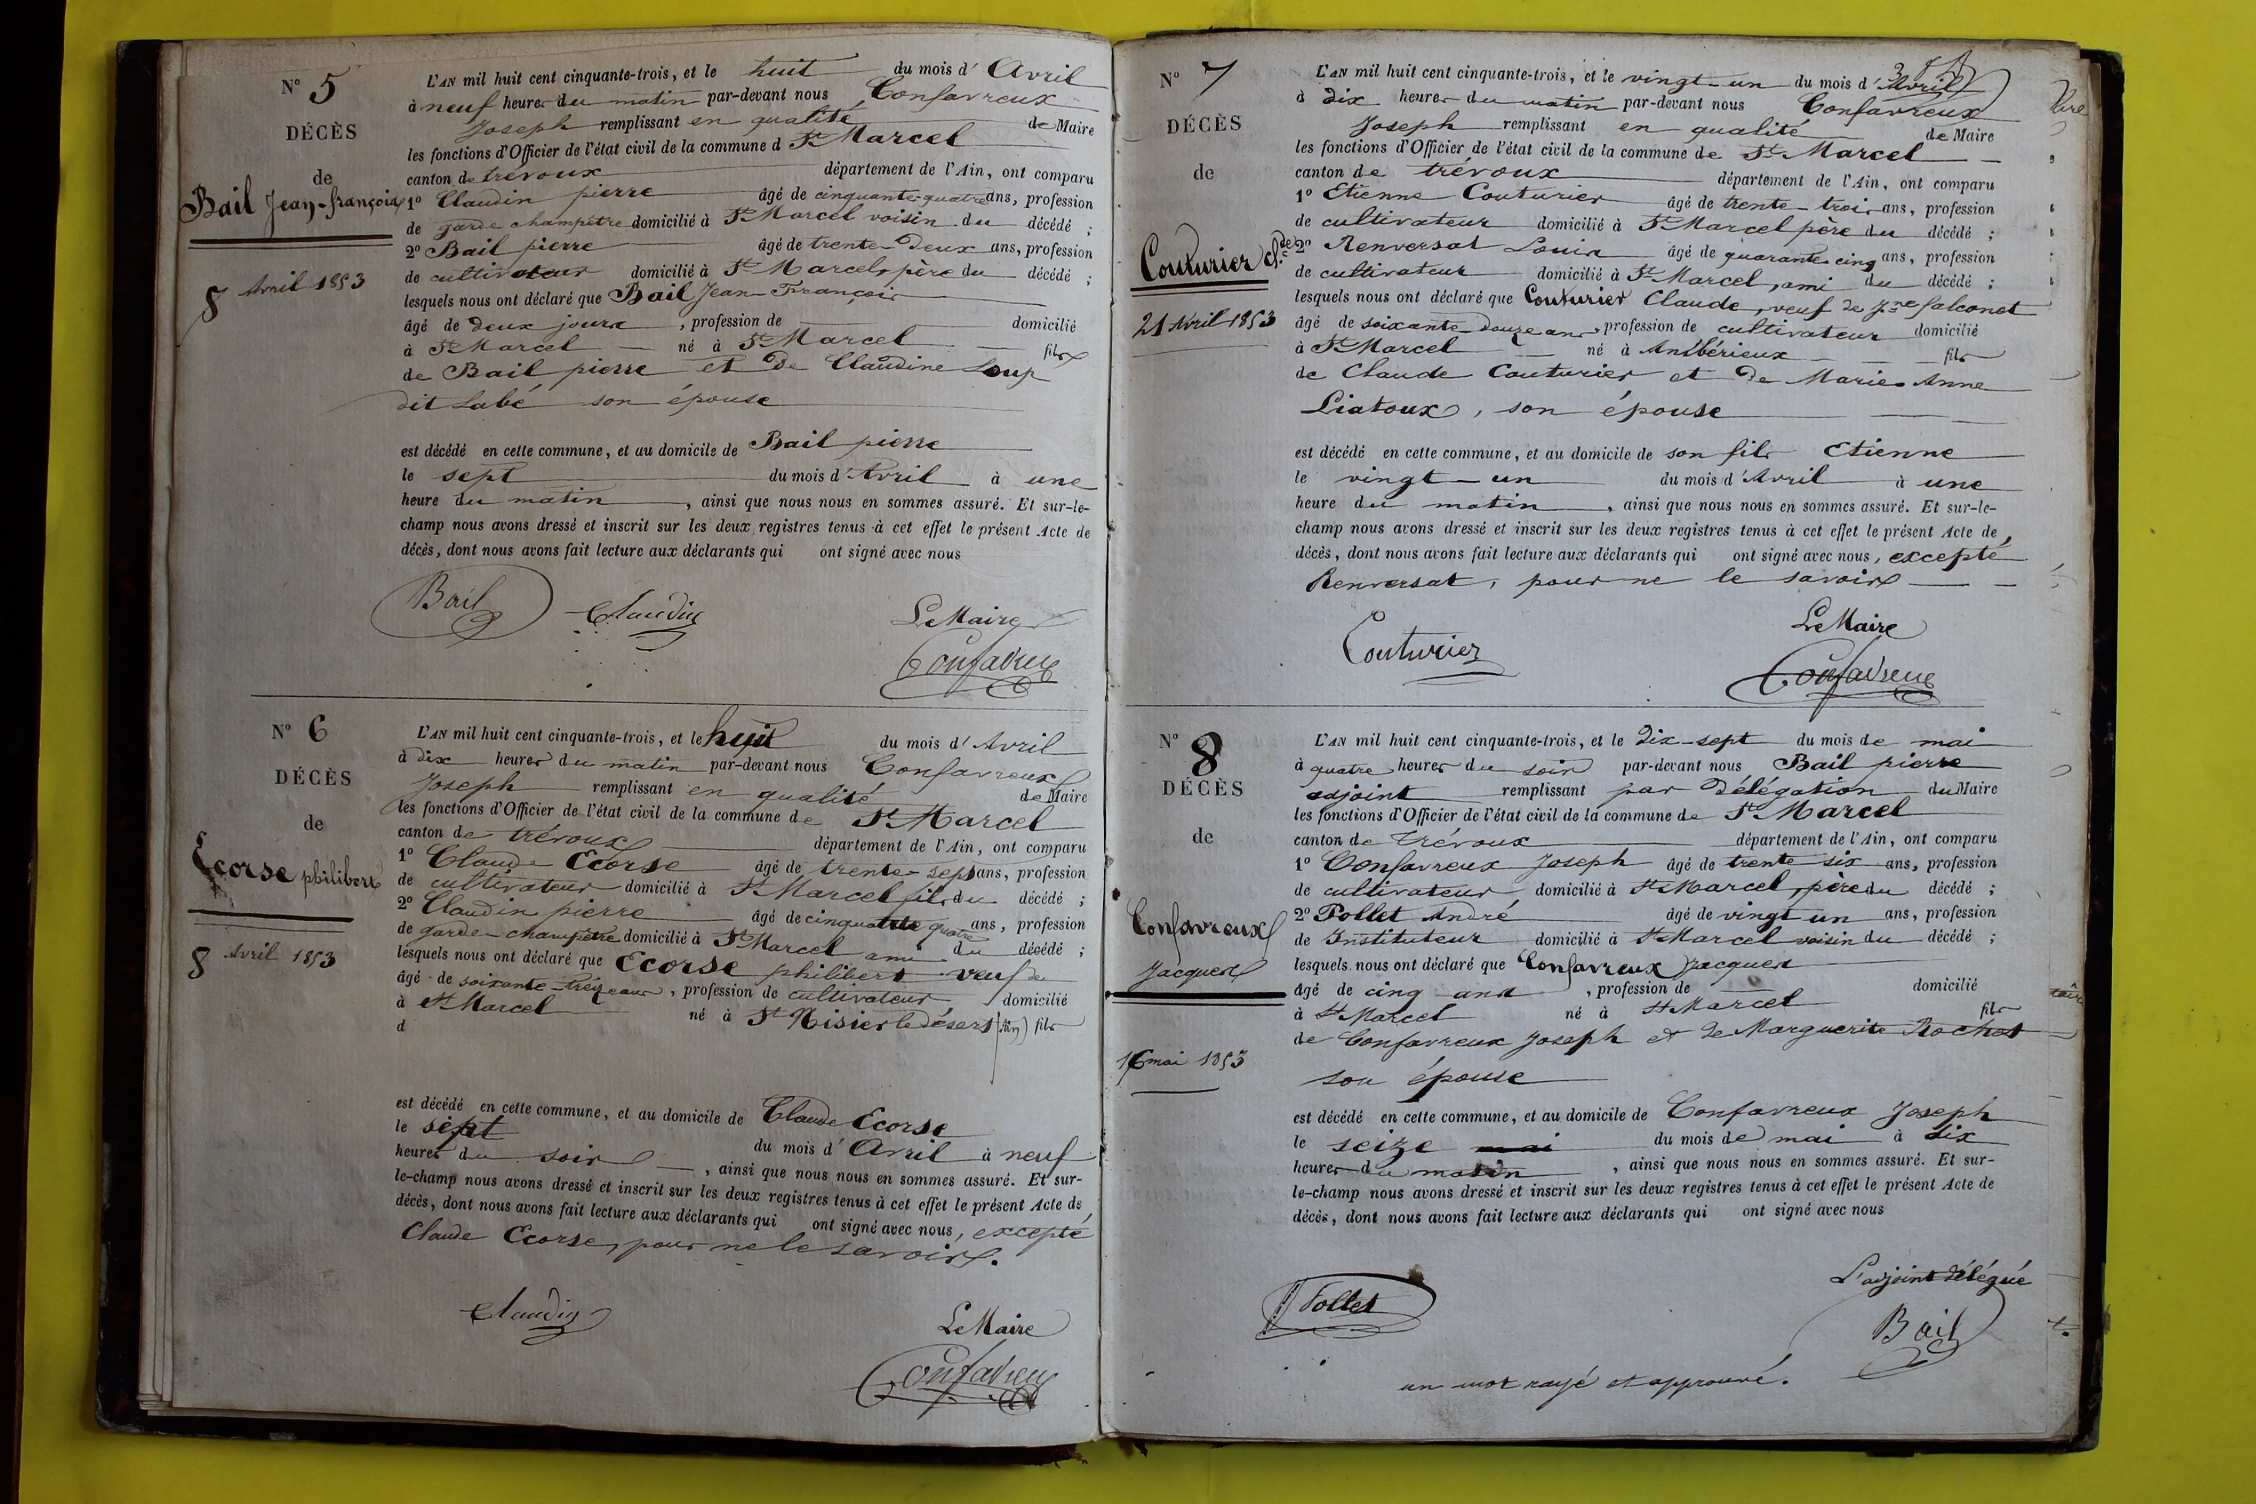 N° 5
DÉCÈS
de
Bail Jean-françois
8 Avril 1853
L'AN mil huit cent cinquante-trois, et le huit du mois d'Avril
à neuf heures du matin par-devant nous Confavreux
Joseph remplissant en qualité de Maire
les fonctions d'Officier de l'état civil de la commune d St Marcel
canton de trévoux département de l'Ain, ont comparu
1° Claudin pierre âgé de cinquante-quatre ans, profession
de garde champêtre domicilié à St Marcel voisin du décédé ;
2° Bail pierre âgé de trente-deux ans, profession
de cultivateur domicilié à St Marcel, père du décédé ;
lesquels nous ont déclaré que Bail Jean-François
âgé de deux jours, profession de domicilié
à St Marcel né à St Marcel fils
de Bail pierre et de Claudine Loup
dit Labé son épouse
est décédé en cette commune, et au domicile de Bail pierre
le sept du mois d'Avril à une
heure du matin, ainsi que nous nous en sommes assuré. Et sur-le-
champ nous avons dressé et inscrit sur les deux registres tenus à cet effet le présent Acte de
décès, dont nous avons fait lecture aux déclarants qui ont signé avec nous
Bail Claudin Le Maire
Confavreux
N° 6
DÉCÈS
de
Écorse philibert
8 Avril 1853
L'AN mil huit cent cinquante-trois, et le huit du mois d'Avril
à dix heures du matin par-devant nous Confavreux
Joseph remplissant en qualité de Maire
les fonctions d'Officier de l'état civil de la commune de St Marcel
canton de trévoux département de l'Ain, ont comparu
1° Claude Ecorse âgé de trente-sept ans, profession
de cultivateur domicilié à St Marcel fils du décédé ;
2° Claudin pierre âgé de cinquante quatre ans, profession
de garde-champêtre domicilié à St Marcel ami du décédé ;
lesquels nous ont déclaré que Ecorse philibert veuf de
âgé de soixante-treize ans, profession de cultivateur domicilié
à St Marcel né à St Nisier le désert (Ain) fils
d
est décédé en cette commune, et au domicile de Claude Ecorse
le sept du mois d'Avril à neuf
heures du soir, ainsi que nous nous en sommes assuré. Et sur-
le-champ nous avons dressé et inscrit sur les deux registres tenus à cet effet le présent Acte de
décès, dont nous avons fait lecture aux déclarants qui ont signé avec nous, excepté
Claude Ecorse, pour ne le savoir.
Claudin Le Maire
Confavreux
N° 7
DÉCÈS
de
Couturier Cl.de
21 Avril 1853
L'AN mil huit cent cinquante-trois, et le vingt-un du mois d'Avril
à dix heures du matin par-devant nous Confavreux
Joseph remplissant en qualité de Maire
les fonctions d'Officier de l'état civil de la commune de St Marcel
canton de trévoux département de l'Ain, ont comparu
1° Etienne Couturier âgé de trente-trois ans, profession
de cultivateur domicilié à St Marcel père du décédé ;
2° Renversat Louis âgé de quarante-cinq ans, profession
de cultivateur domicilié à St Marcel, ami du décédé ;
lesquels nous ont déclaré que Couturier Claude, veuf de Jne falconet
âgé de soixante-douze ans, profession de cultivateur domicilié
à St Marcel né à Ambérieux fils
de Claude Couturier et de Marie-Anne
Liatoux, son épouse
est décédé en cette commune, et au domicile de son fils Etienne
le vingt-un du mois d'Avril à une
heure du matin, ainsi que nous nous en sommes assuré. Et sur-le-
champ nous avons dressé et inscrit sur les deux registres tenus à cet effet le présent Acte de
décès, dont nous avons fait lecture aux déclarants qui ont signé avec nous, excepté
Renversat, pour ne le savoir
Couturier Le Maire
Confavreux
N° 8
DÉCÈS
de
Confavreux
Jacques
16 mai 1853
L'AN mil huit cent cinquante-trois, et le dix-sept du mois de mai
à quatre heures du soir par-devant nous Bail pierre
adjoint remplissant par délégation du Maire
les fonctions d'Officier de l'état civil de la commune de St Marcel
canton de Trévoux département de l'Ain, ont comparu
1° Confavreux Joseph âgé de trente six ans, profession
de cultivateur domicilié à St Marcel, père du décédé ;
2° Pollet André âgé de vingt un ans, profession
de Instituteur domicilié à St Marcel voisin du décédé ;
lesquels nous ont déclaré que Confavreux Jacques
âgé de cinq ans, profession de domicilié
à St Marcel né à St Marcel fils
de Confavreux Joseph et de Marguerite Rochet
son épouse
est décédé en cette commune, et au domicile de Confavreux Joseph
le seize mai du mois de mai à six
heures du matin, ainsi que nous nous en sommes assuré. Et sur-
le-champ nous avons dressé et inscrit sur les deux registres tenus à cet effet le présent Acte de
décès, dont nous avons fait lecture aux déclarants qui ont signé avec nous
L'adjoint délégué
Pollet Bail
un mot rayé et approuvé.